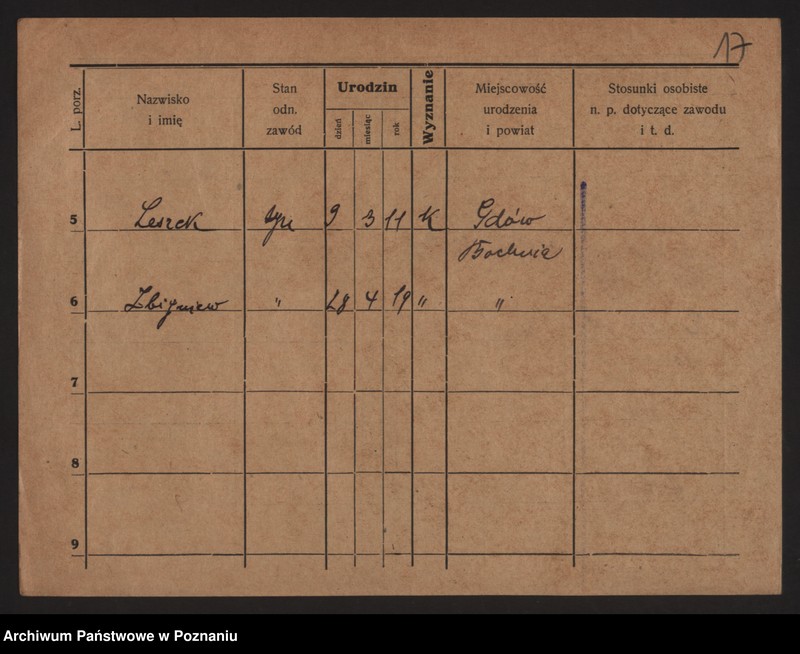 17
L. porz.
Nazwisko
i imię
Stan
odn.
zawód
Urodzin
dzień
miesiąc
rok
Wyznanie
Miejscowość
urodzenia
i powiat
Stosunki osobiste
n. p. dotyczące zawodu
i t. d.
5 Leszek syn 9 3 11 k Gdów
Bochnia
6 Zbigniew " 28 4 19 " "
7
8
9
Archiwum Państwowe w Poznaniu